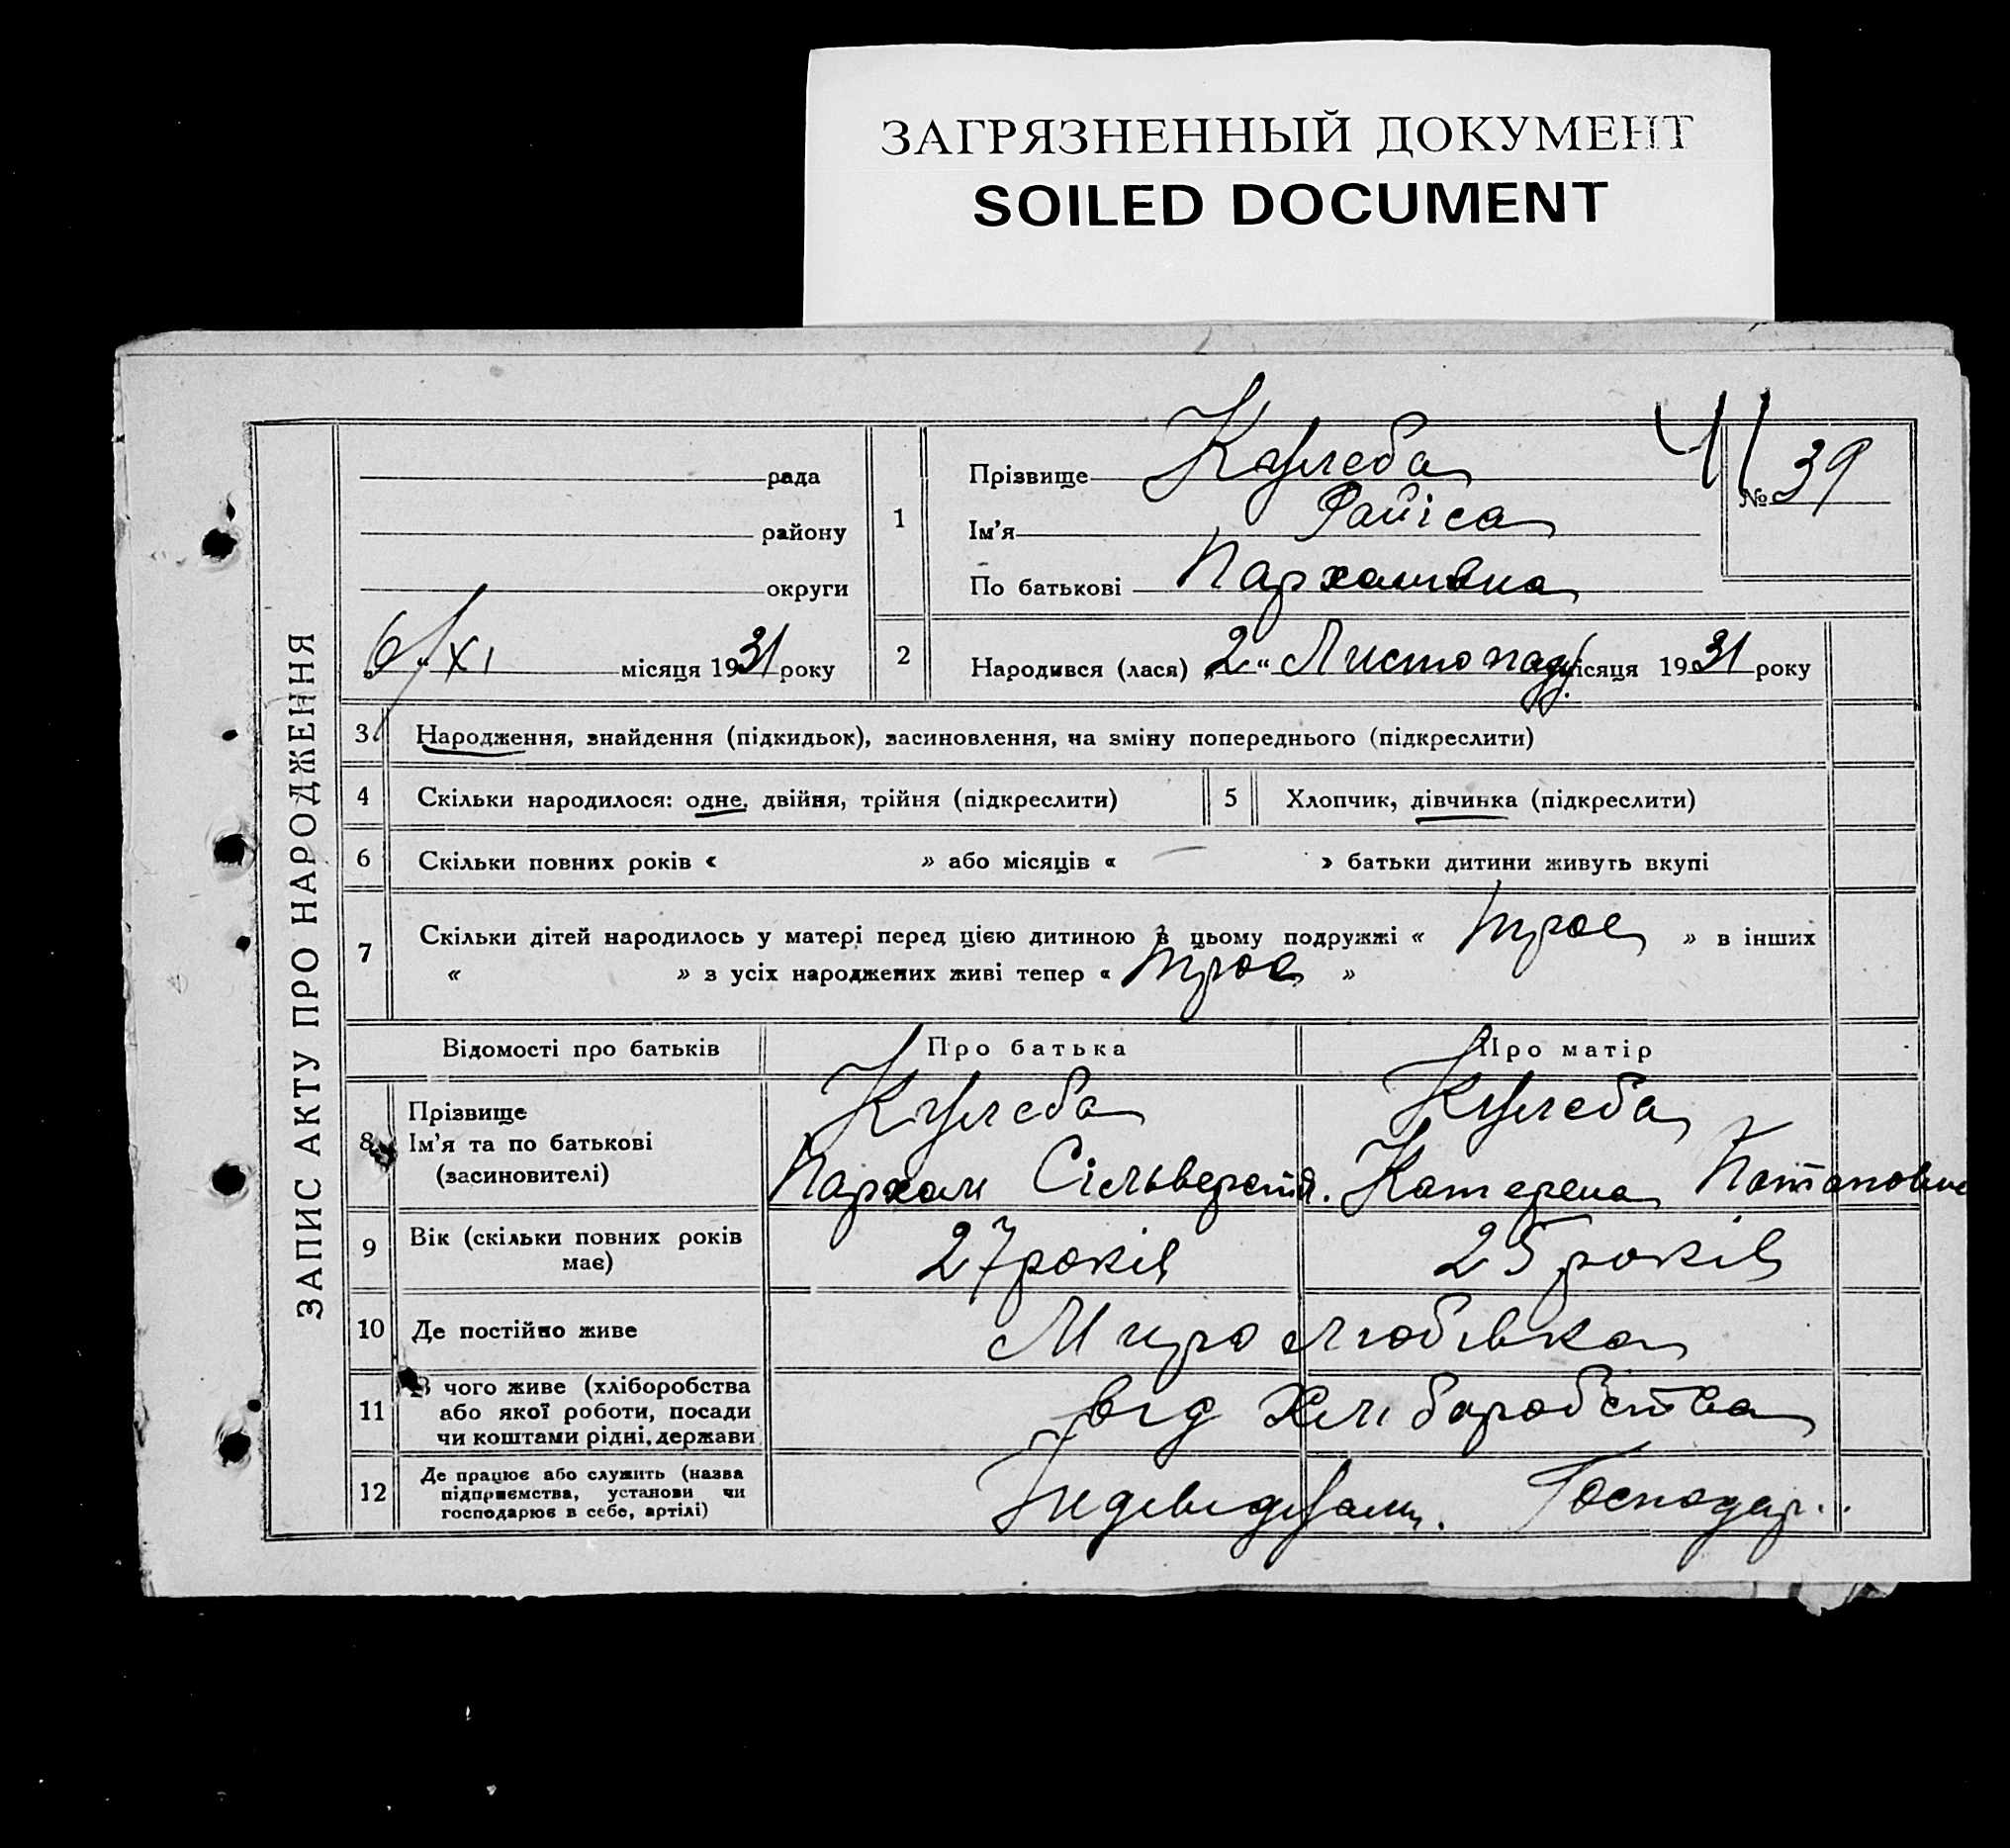 ЗАГРЯЗНЕННЫЙ ДОКУМЕНТ
SOILED DOCUMENT
ЗАПИС АКТУ ПРО НАРОДЖЕННЯ
рада
району
округи
6/XI місяця 1931 року
1
Прізвище Кулеба
Ім'я Раїса
По батькові Пархомівна
№ 39
2 Народився (лася) „2“ Листопаду місяця 1931 року
3 Народження, знайдення (підкидьок), засиновлення, на зміну попереднього (підкреслити)
4 Скільки народилося: одне, двійня, трійня (підкреслити)
5 Хлопчик, дівчинка (підкреслити)
6 Скільки повних років « » або місяців « » батьки дитини живуть вкупі
7 Скільки дітей народилось у матері перед цією дитиною в цьому подружжі « троє » в інших
« » з усіх народжених живі тепер « троє »
Відомості про батьків Про батька Про матір
8 Прізвище Кулеба Кулеба
Ім'я та по батькові Пархом Сільверств. Катерена Потаповна
(засиновителі)
9 Вік (скільки повних років має) 27 років 25 років
10 Де постійно живе Миролюбівка
11 З чого живе (хліборобства
або якої роботи, посади
чи коштами рідні, держави
від Хліборобства
12 Де працює або служить (назва
підприємства, установи чи
господарює в себе, артілі)
Індевідуалн. Господар..